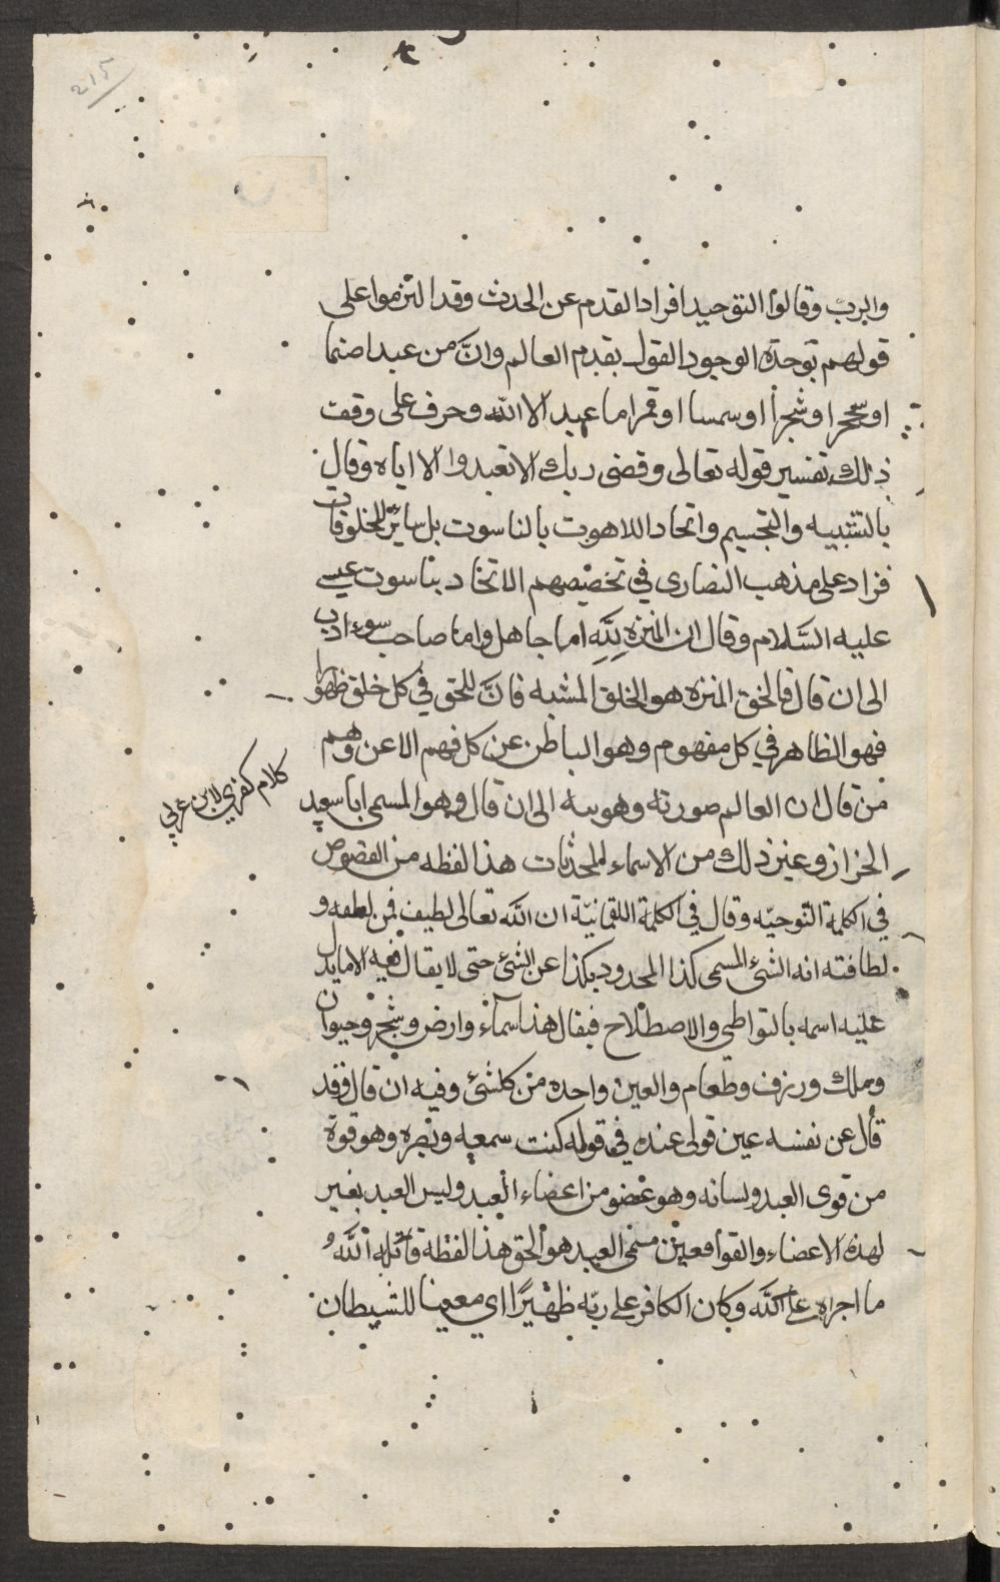 215
والرب وقالوا التوحيد افراد القدم عن الحدث وقد التزموا على
قولهم بوحدة الوجود القول بقدم العالم وانّ من عبد اصنما
او حجرا وشجرا او سمسا او قمرا ما عبد الا الله وحرف على وقت
ذلك تفسير قوله تعالى وقضى ربك الا تعبدوا الا اياه وقال
بالتشبيه والتجسيم واتحاد اللاهوت بالناسوت بل سائر المخلوقات
فزاد على مذهب النصارى في تخصيصهم الاتحاد بناسوت عيسى
عليه السَّلام وقال ان المنزه لله اما جاهل واما صاحب سوء ادب
الى ان قال فالحق المنزه هو الخلق المشبه فانَّ للحق في كل خلق ظهورا
فهو الظاهر في كل مفهوم وهو الباطن عن كل فهم الا عن وهم
من قال ان العالم صورته وهويته الى ان قال وهو المسمى ابا سعيد
كلام كفري لابن عربي
الخراز وغير ذلك من الاسماء المحدثات هذا لفظه من الفصوص
في الكلمة النوحيّه وقال في الكلمة اللقمانيّة ان الله تعالى لطيف فمن لطفه و
لطافته انه الشئ المسمى كذا المحدود بكذا عن الشئ حتى لا يقال فيه الا ما يدل
عليه اسمه بالتواطي والاصطلاح فيقال هذا سمآء وارض وشجر وحيوان
وملك ورزق وطعام والعين واحده من كلشئ وفيه ان قال فقد
قال عن نفسه عين قوي عنده في قوله كنت سمعه وبصره وهو قوة
من قوى العبد ولسانه وهو عضو من اعضاء العبد وليس العبد بغير
لهذه الاعضاء والقوا فعين مسمى العبد هو الحق هذا لفظه قاتله الله و
ما اجراه على الله وكان الكافر على ربّه ظهيرًا اي معينا للشيطان